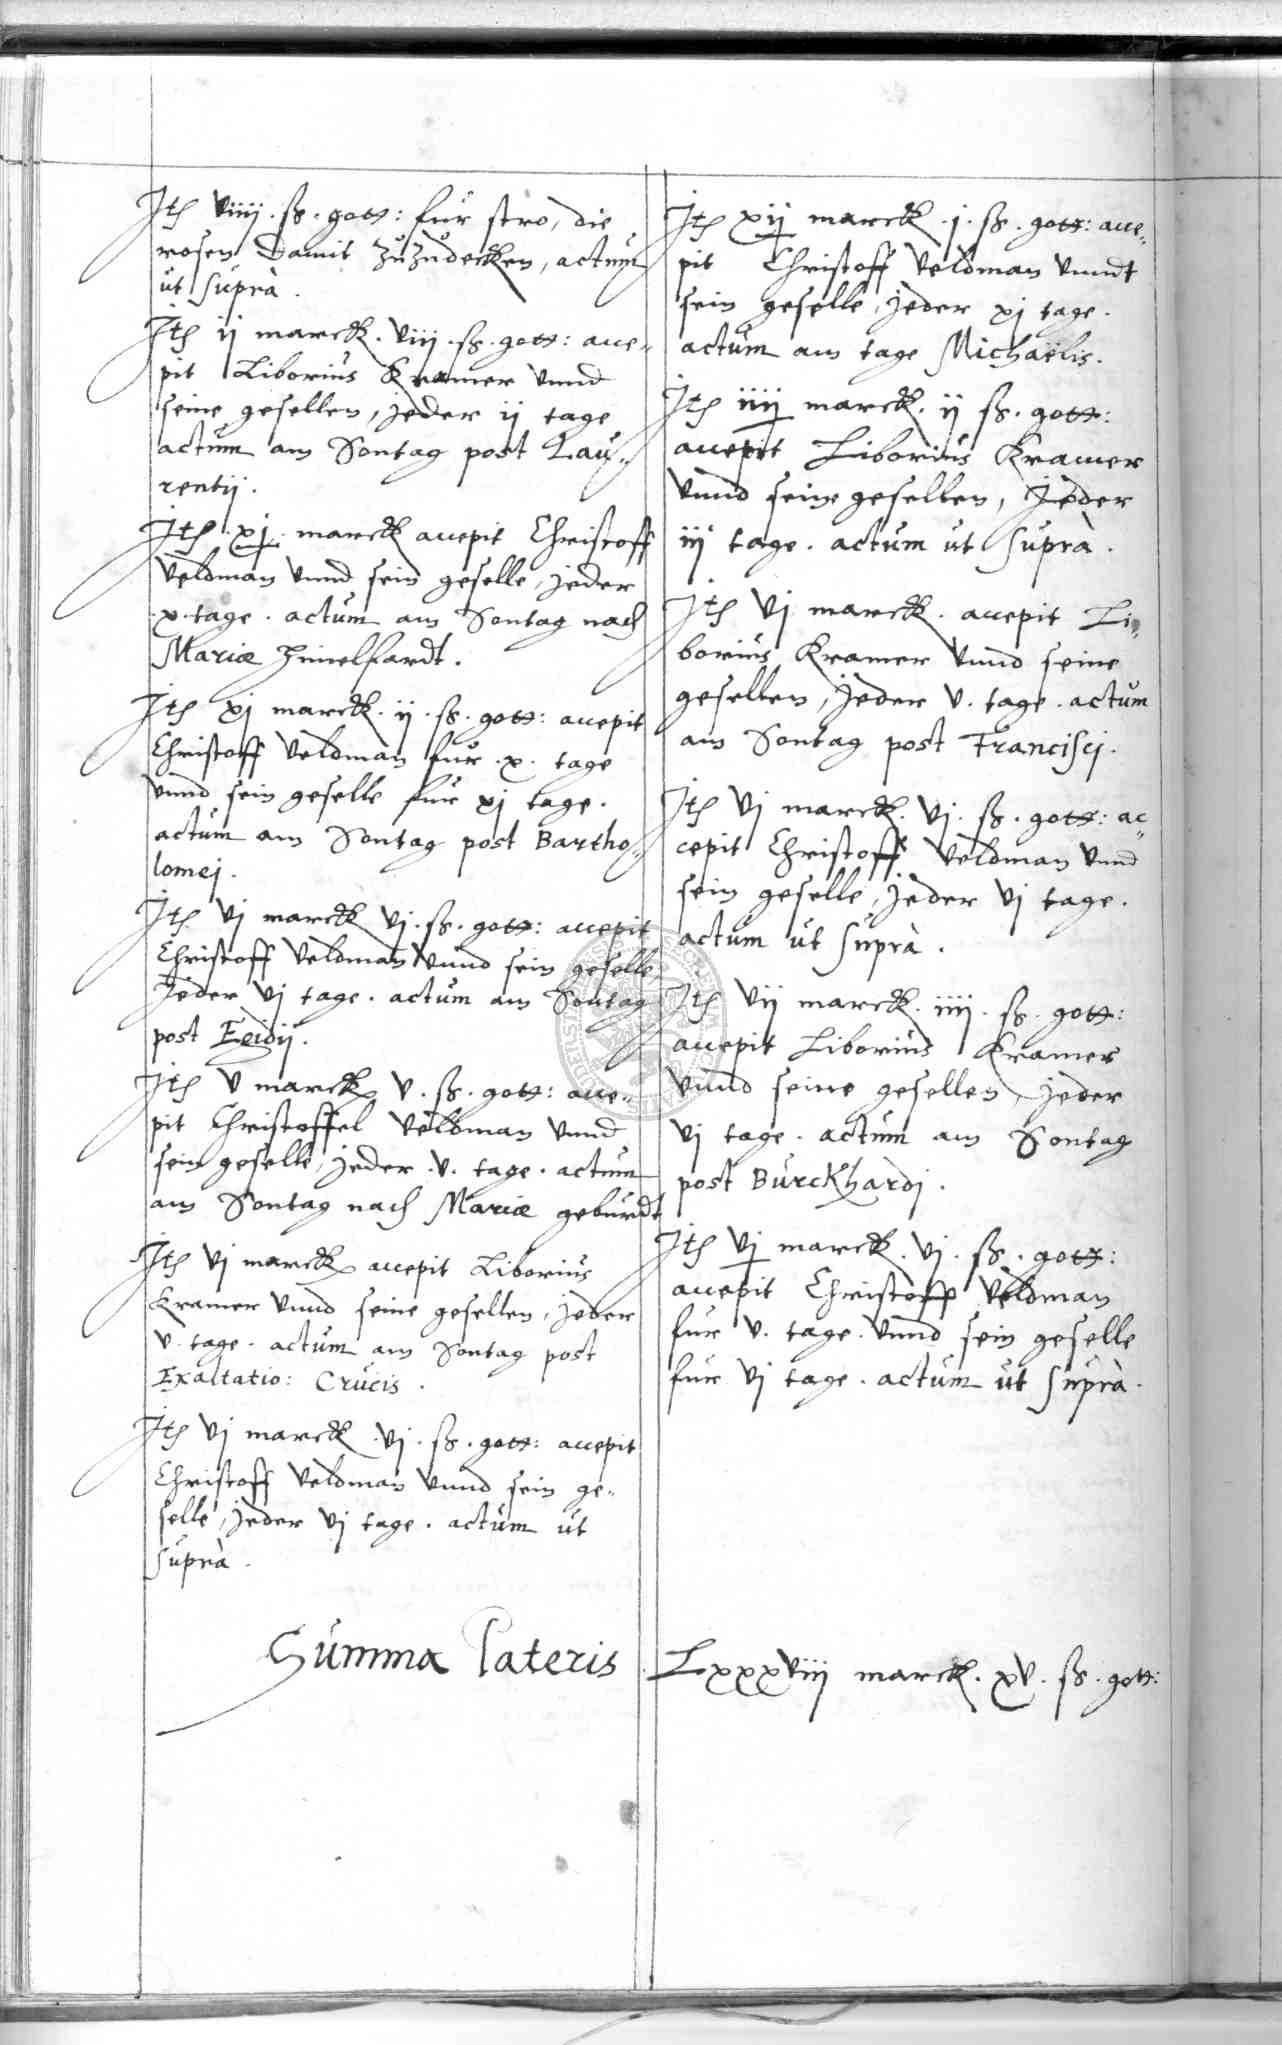 Jtem viiij . ß . gott: für stro, die
rosen damit zuzudecken, actum
ut suprà .
Jtem ij marck . viij . ß . gott: acce„
pit Liborius Kramer vnnd
seine gesellen, jeder ij tage
actum am Sontag post Lau„
rentij .
Jtem xj marck accepit Christoff
Veldman vnnd sein geselle, jeder
x tage . actum am Sontag nach
Mariæ Himelfardt .
Jtem xj marck . ij . ß . gott: accepit
Christoff Veldman fur . x . tage
vnnd sein geselle fur xj tage .
actum am Sontag post Bartho„
lomej .
Jtem vj marck vj . ß . gott: accepit
Christoff Veldman vnnd sein geselle
Jeder vj tage . actum am Sontag
post Egidij .
Jtem v marck v . ß . gott: acce„
pit Christoffel Veldman vnnd
sein geselle, jeder . v . tage . actum
am Sontag nach Mariæ geburdt
Jtem vj marck accepit Liborius
Kramer vnnd seine gesellen, jeder
v . tage . actum am Sontag post
Exaltatio: Crucis .
Jtem vj marck . vj . ß . gott: accepit
Christoff Veldman vnnd sein ge„
selle, jeder vj tage . actum ut
suprà .
Jtem xij marck . j . ß . gott: acce„
pit Christoff Veldman vnndt
sein geselle, jeder xj tage .
actum am tage Michaëlis .
Jtem iiij marck . ij ß . gott:
accepit Liborius Kramer
vnnd seine gesellen, Jeder
iij tage . actum ut suprà .
Jtem vj marck . accepit Li„
borius Kramer vnnd seine
gesellen, Jeder v . tage . actum
am Sontag post Francisci .
Jtem vj marck . vj . ß . gott: ac„
cepit Christoff Veldman vnnd
sein geselle, Jeder vj tage .
actum ut suprà .
Jtem vij marck . iiij . ß . gott:
accepit Liborius Kramer
vnnd seine gesellen, Jeder
vj tage . actum am Sontag
post Burckhardi .
Jtem vj marck . vj . ß . gott:
accepit Christoff Veldman
fur v . tage . vnnd sein geselle
fur vj tage . actum ut suprà .
Summa lateris Lxxxviij marck . xv . ß . gott: